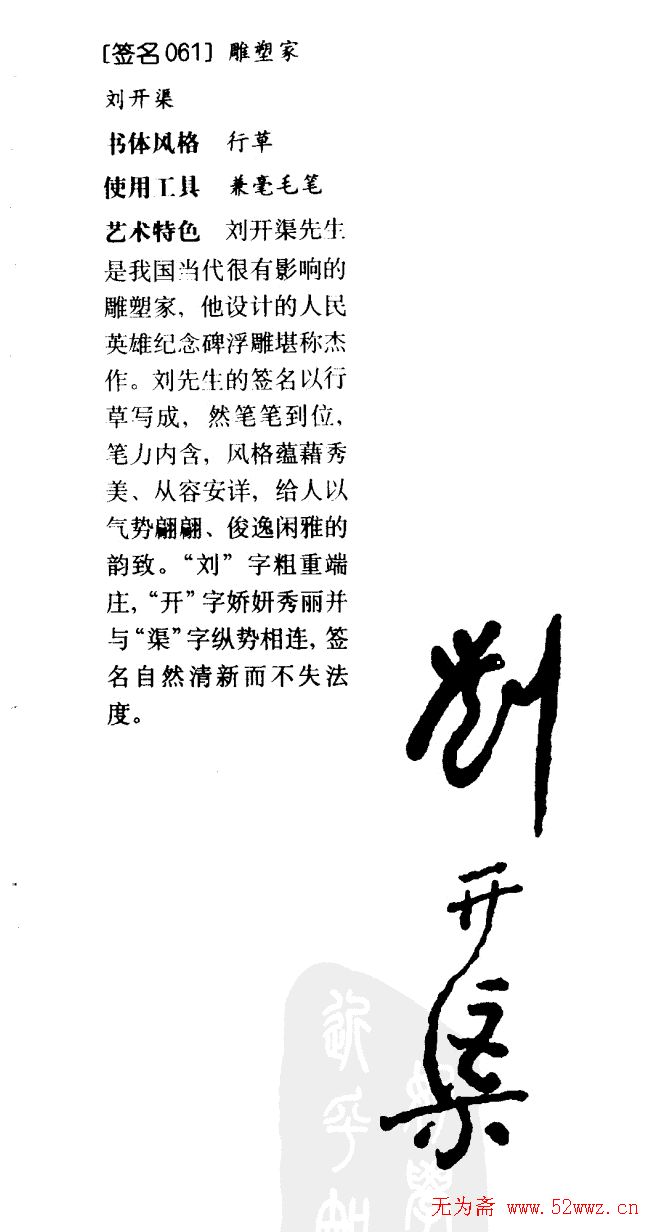 [签名061] 雕塑家
刘开渠
书体风格 行草
使用工具 兼毫毛笔
艺术特色 刘开渠先生
是我国当代很有影响的
雕塑家，他设计的人民
英雄纪念碑浮雕堪称杰
作。刘先生的签名以行
草写成，然笔笔到位，
笔力内含，风格蕴藉秀
美、从容安详，给人以
气势翩翩、俊逸闲雅的
韵致。“刘”字粗重端
庄，“开”字娇妍秀丽并
与“渠”字纵势相连，签
名自然清新而不失法
度。
刘
开
渠
无为斋 www.52wwz.cn